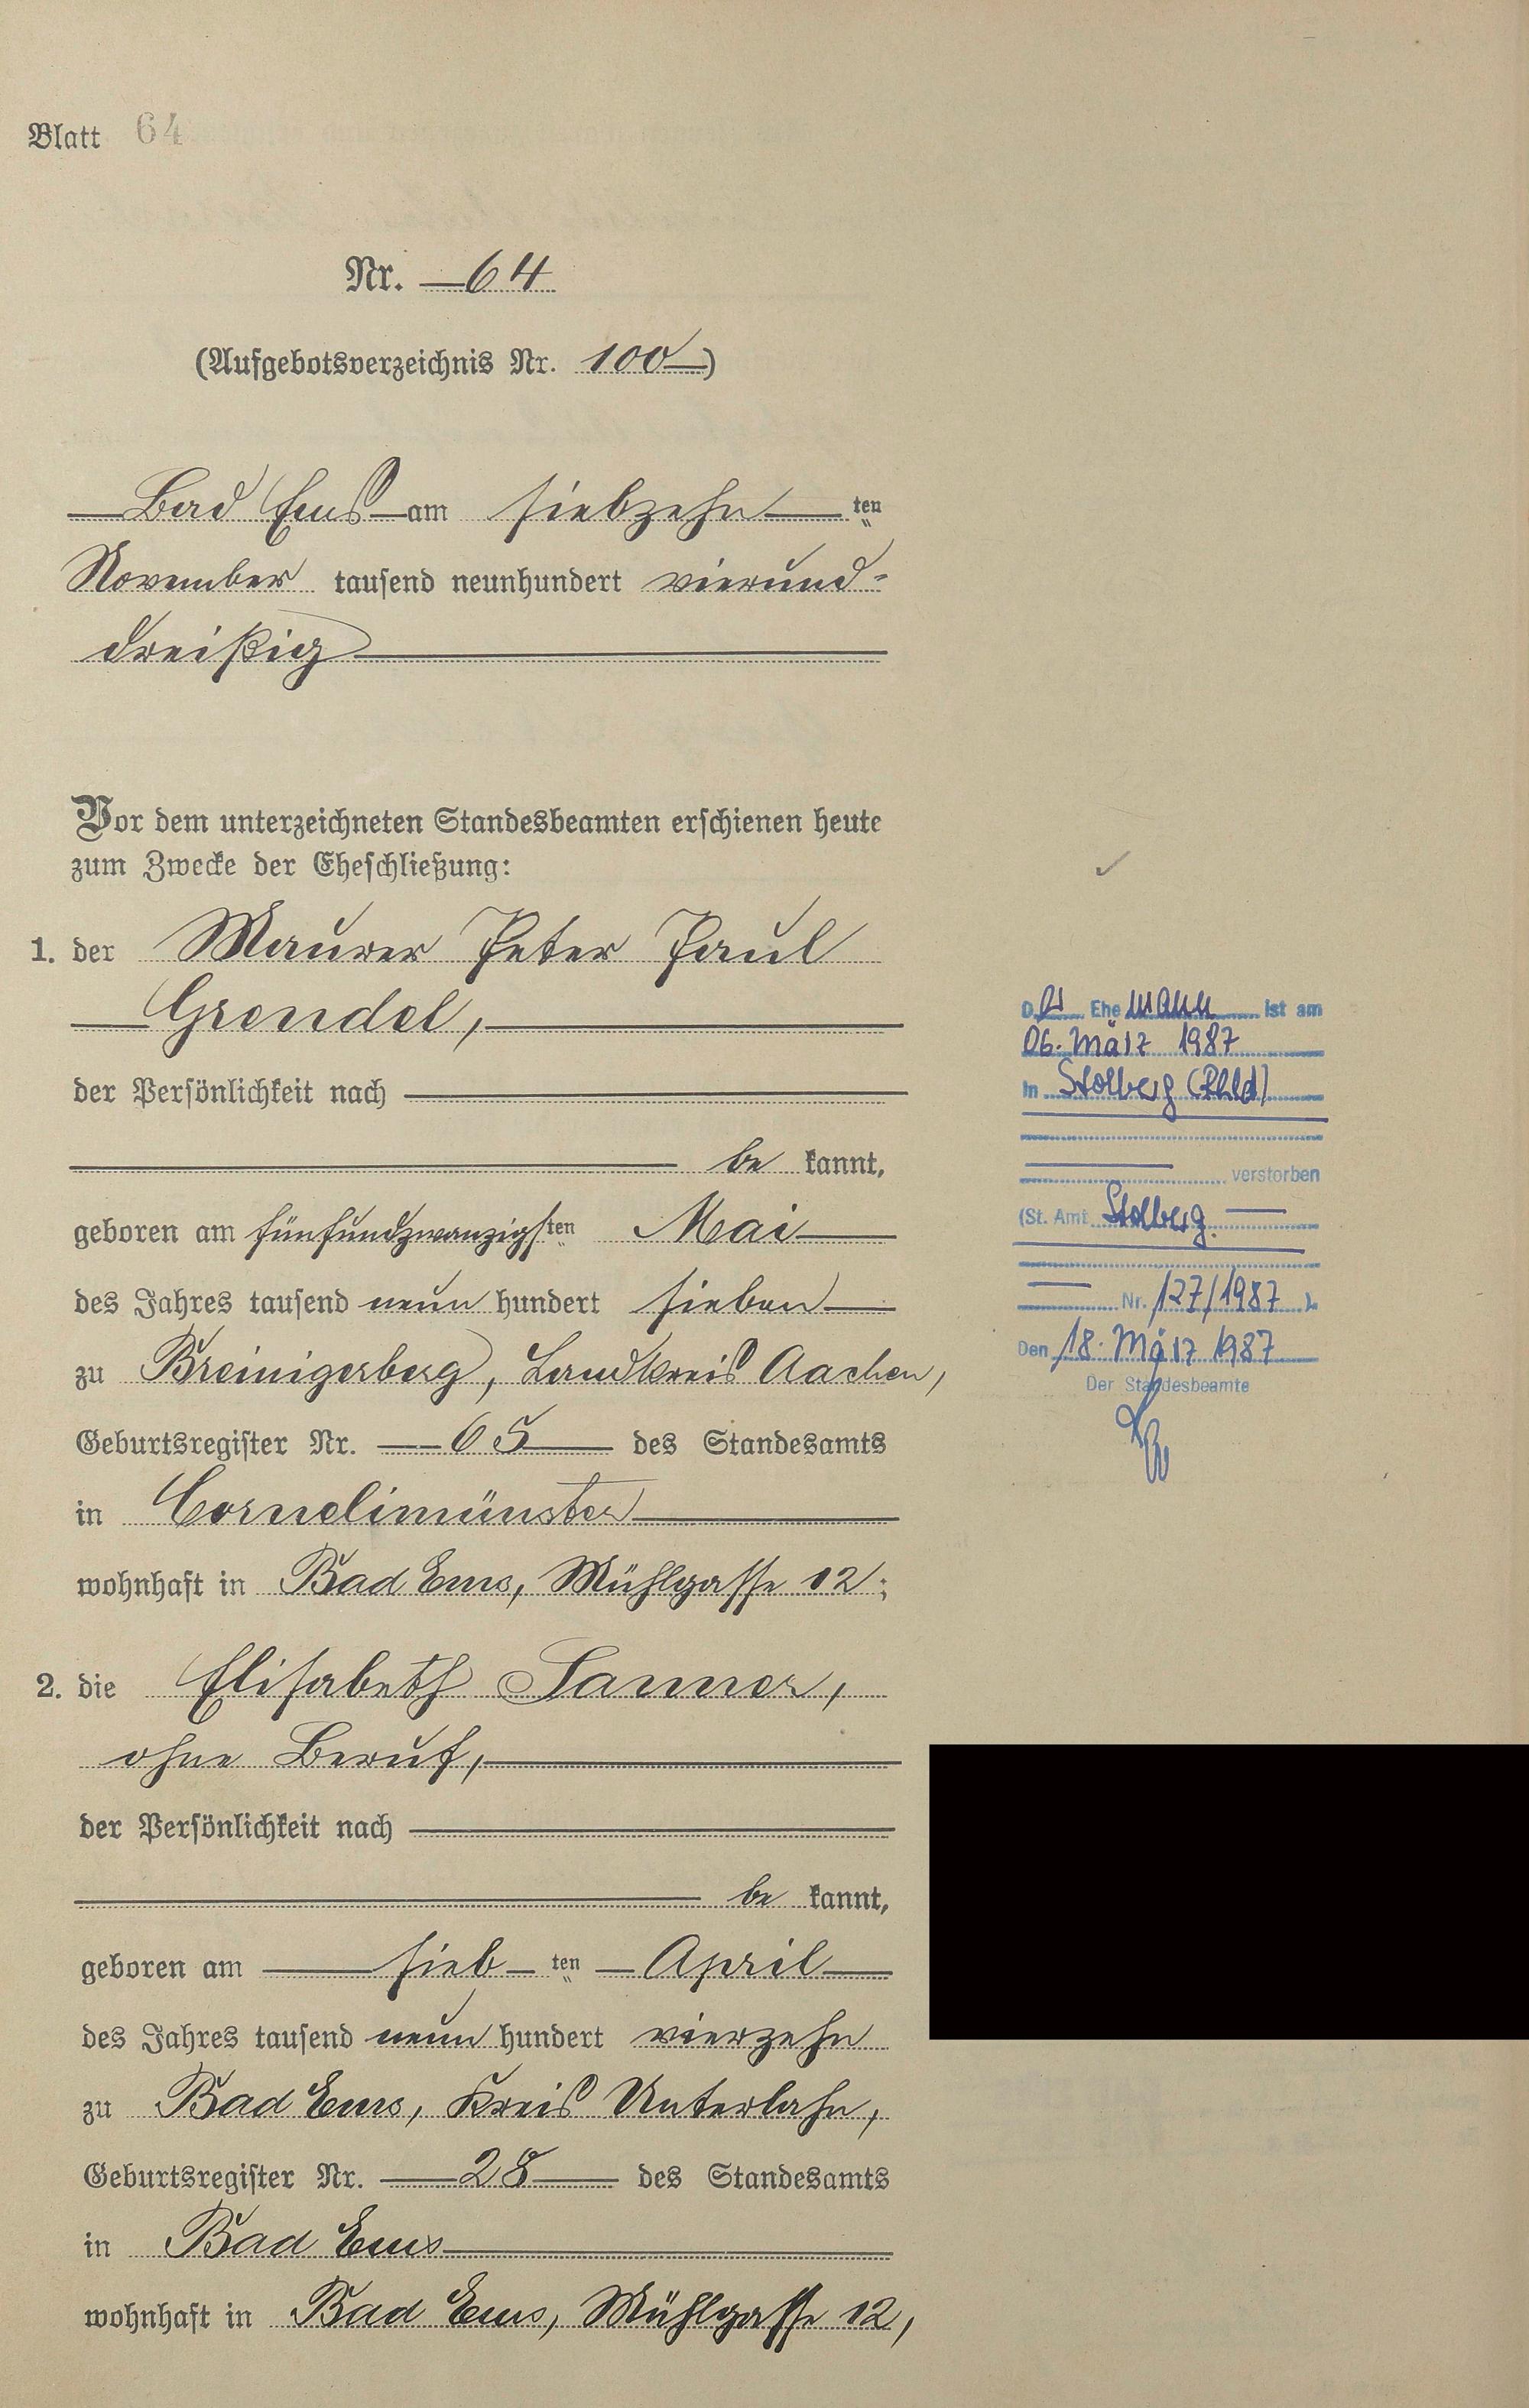 Blatt 64
Nr. 64
(Aufgebotsverzeichnis Nr. 100)
Bad Ems am siebzehn ten
November tausend neunhundert vierund-
dreißig
Vor dem unterzeichneten Standesbeamten erschienen heute
zum Zwecke der Eheschließung:
1. der Maurer Peter Paul
Grendel,
der Persönlichkeit nach
be kannt,
geboren am fünfundzwanzigsten Mai
des Jahres tausend neun hundert sieben
zu Breinigerberg, Landkreis Aachen,
Geburtsregister Nr. 65 des Standesamts
in Cornelimünster
wohnhaft in Bad Ems, Mühlgasse 12;
2. die Elisabeth Sanner,
ohne Beruf,
der Persönlichkeit nach
be kannt,
geboren am sieb ten April
des Jahres tausend neun hundert vierzehn
zu Bad Ems, Kreis Unterlahn,
Geburtsregister Nr. 28 des Standesamts
in Bad Ems
wohnhaft in Bad Ems, Mühlgasse 12,
Der Ehemann ist am
06. März 1987
in Stolberg (Rhld)
verstorben
(St. Amt Stolberg
Nr. 127/1987 )
Den 18. März 1987
Der Standesbeamte